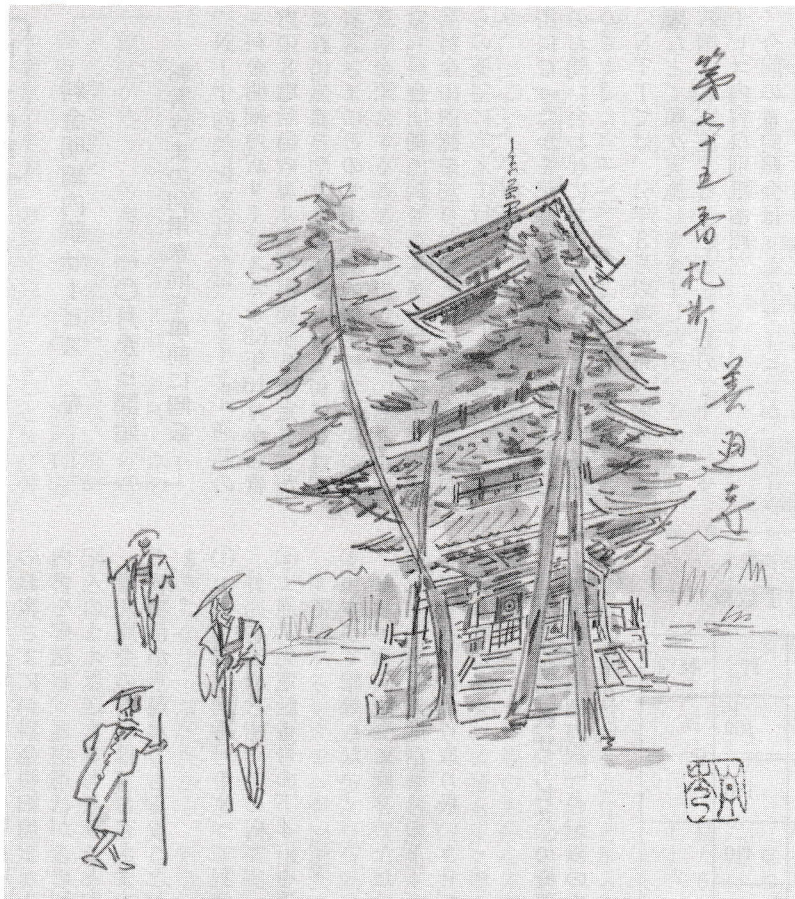 第七十五番札所
善通寺